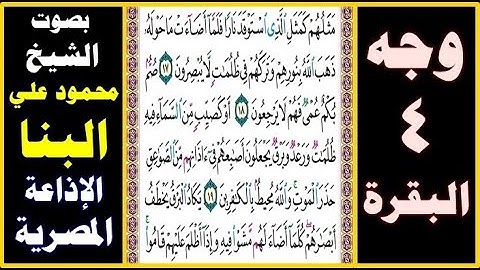 وجه
٤
البقرة
مَثَلُهُمْ كَمَثَلِ الَّذِي اسْتَوْقَدَ نَارًا فَلَمَّا أَضَاءَتْ مَا حَوْلَهُ
ذَهَبَ اللَّهُ بِنُورِهِمْ وَتَرَكَهُمْ فِي ظُلُمَاتٍ لَا يُبْصِرُونَ ١٧ صُمٌّ
بُكْمٌ عُمْيٌ فَهُمْ لَا يَرْجِعُونَ ١٨ أَوْ كَصَيِّبٍ مِنَ السَّمَاءِ فِيهِ
ظُلُمَاتٌ وَرَعْدٌ وَبَرْقٌ يَجْعَلُونَ أَصَابِعَهُمْ فِي آذَانِهِمْ مِنَ الصَّوَاعِقِ
حَذَرَ الْمَوْتِ وَاللَّهُ مُحِيطٌ بِالْكَافِرِينَ ١٩ يَكَادُ الْبَرْقُ يَخْطَفُ
أَبْصَارَهُمْ كُلَّمَا أَضَاءَ لَهُمْ مَشَوْا فِيهِ وَإِذَا أَظْلَمَ عَلَيْهِمْ قَامُوا
بصوت
الشيخ
محمود علي
البنا
الإذاعة
المصرية